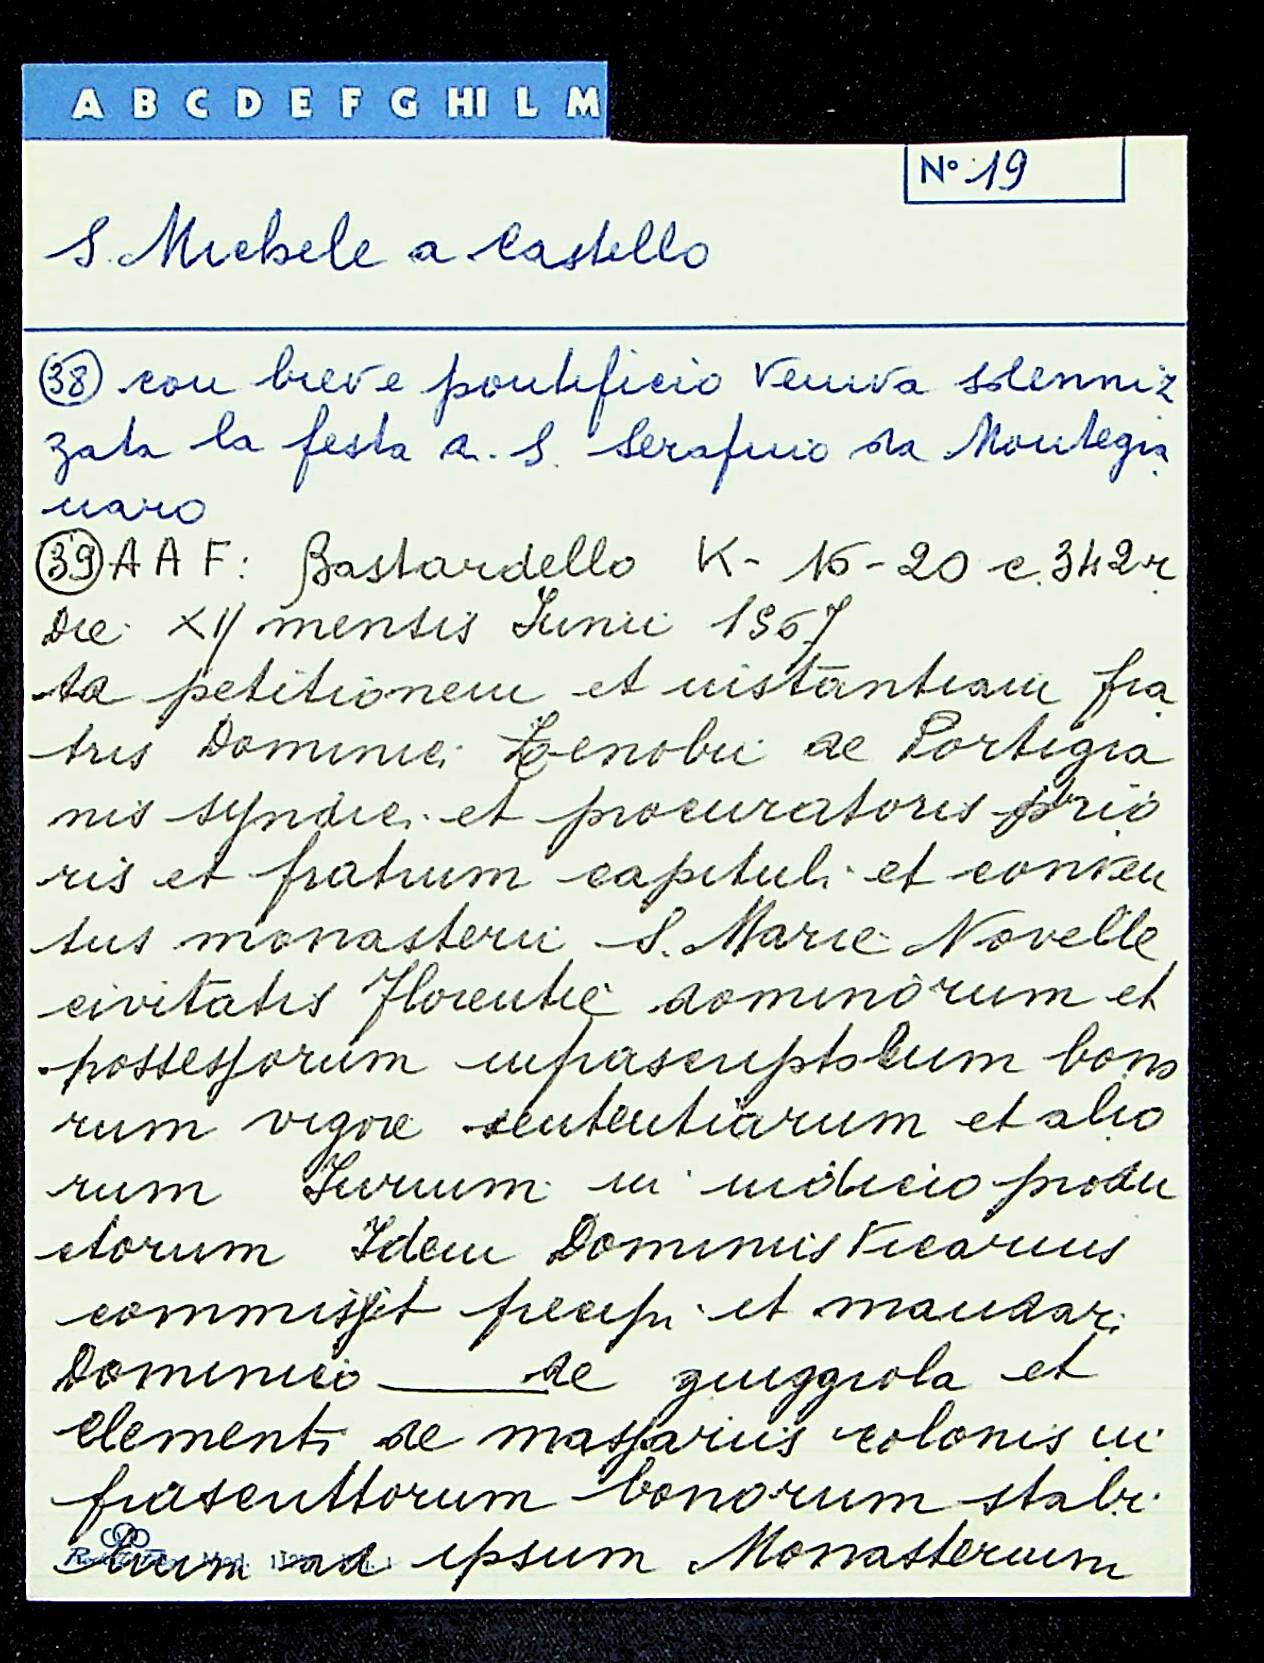 A B C D E F G HI L M
N° 19
S. Michele a Castello
38 con breve pontificio veniva solenniz
zata la festa a. S. Serafino da Montegra
naro
39 A A F: Bastardello K- 16-20 c. 342r
Die XII mensis Junii 1567
ta petitionem et instantiam fra
tris Dominici Zenobii de Portigia
nis syndici et procuratoris prio
ris et fratrum capituli et conven
tus monasterii S. Marie Novelle
civitatis Florentie dominorum et
possessorum infrascriptorum bono
rum vigore sententiarum et alio
rum Jurium in iudicio produ
ctorum Idem Dominus Vicarius
commissit precipi et mandari
Dominico ___ de giuggiola et
Clementi de massariis colonis in
frascrittorum bonorum stabi
lium ad ipsum Monasterium